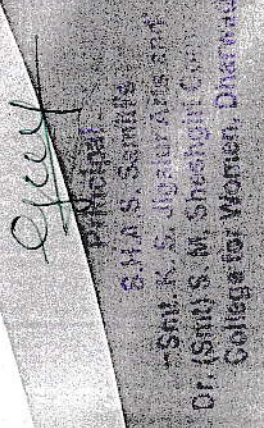 Principal
S.H.A S. Samiti's
"Smt. K. S. Jigalur Arts and
Dr. (Smt) S. M. Sheshgiri Com
College for Women, Dharwad